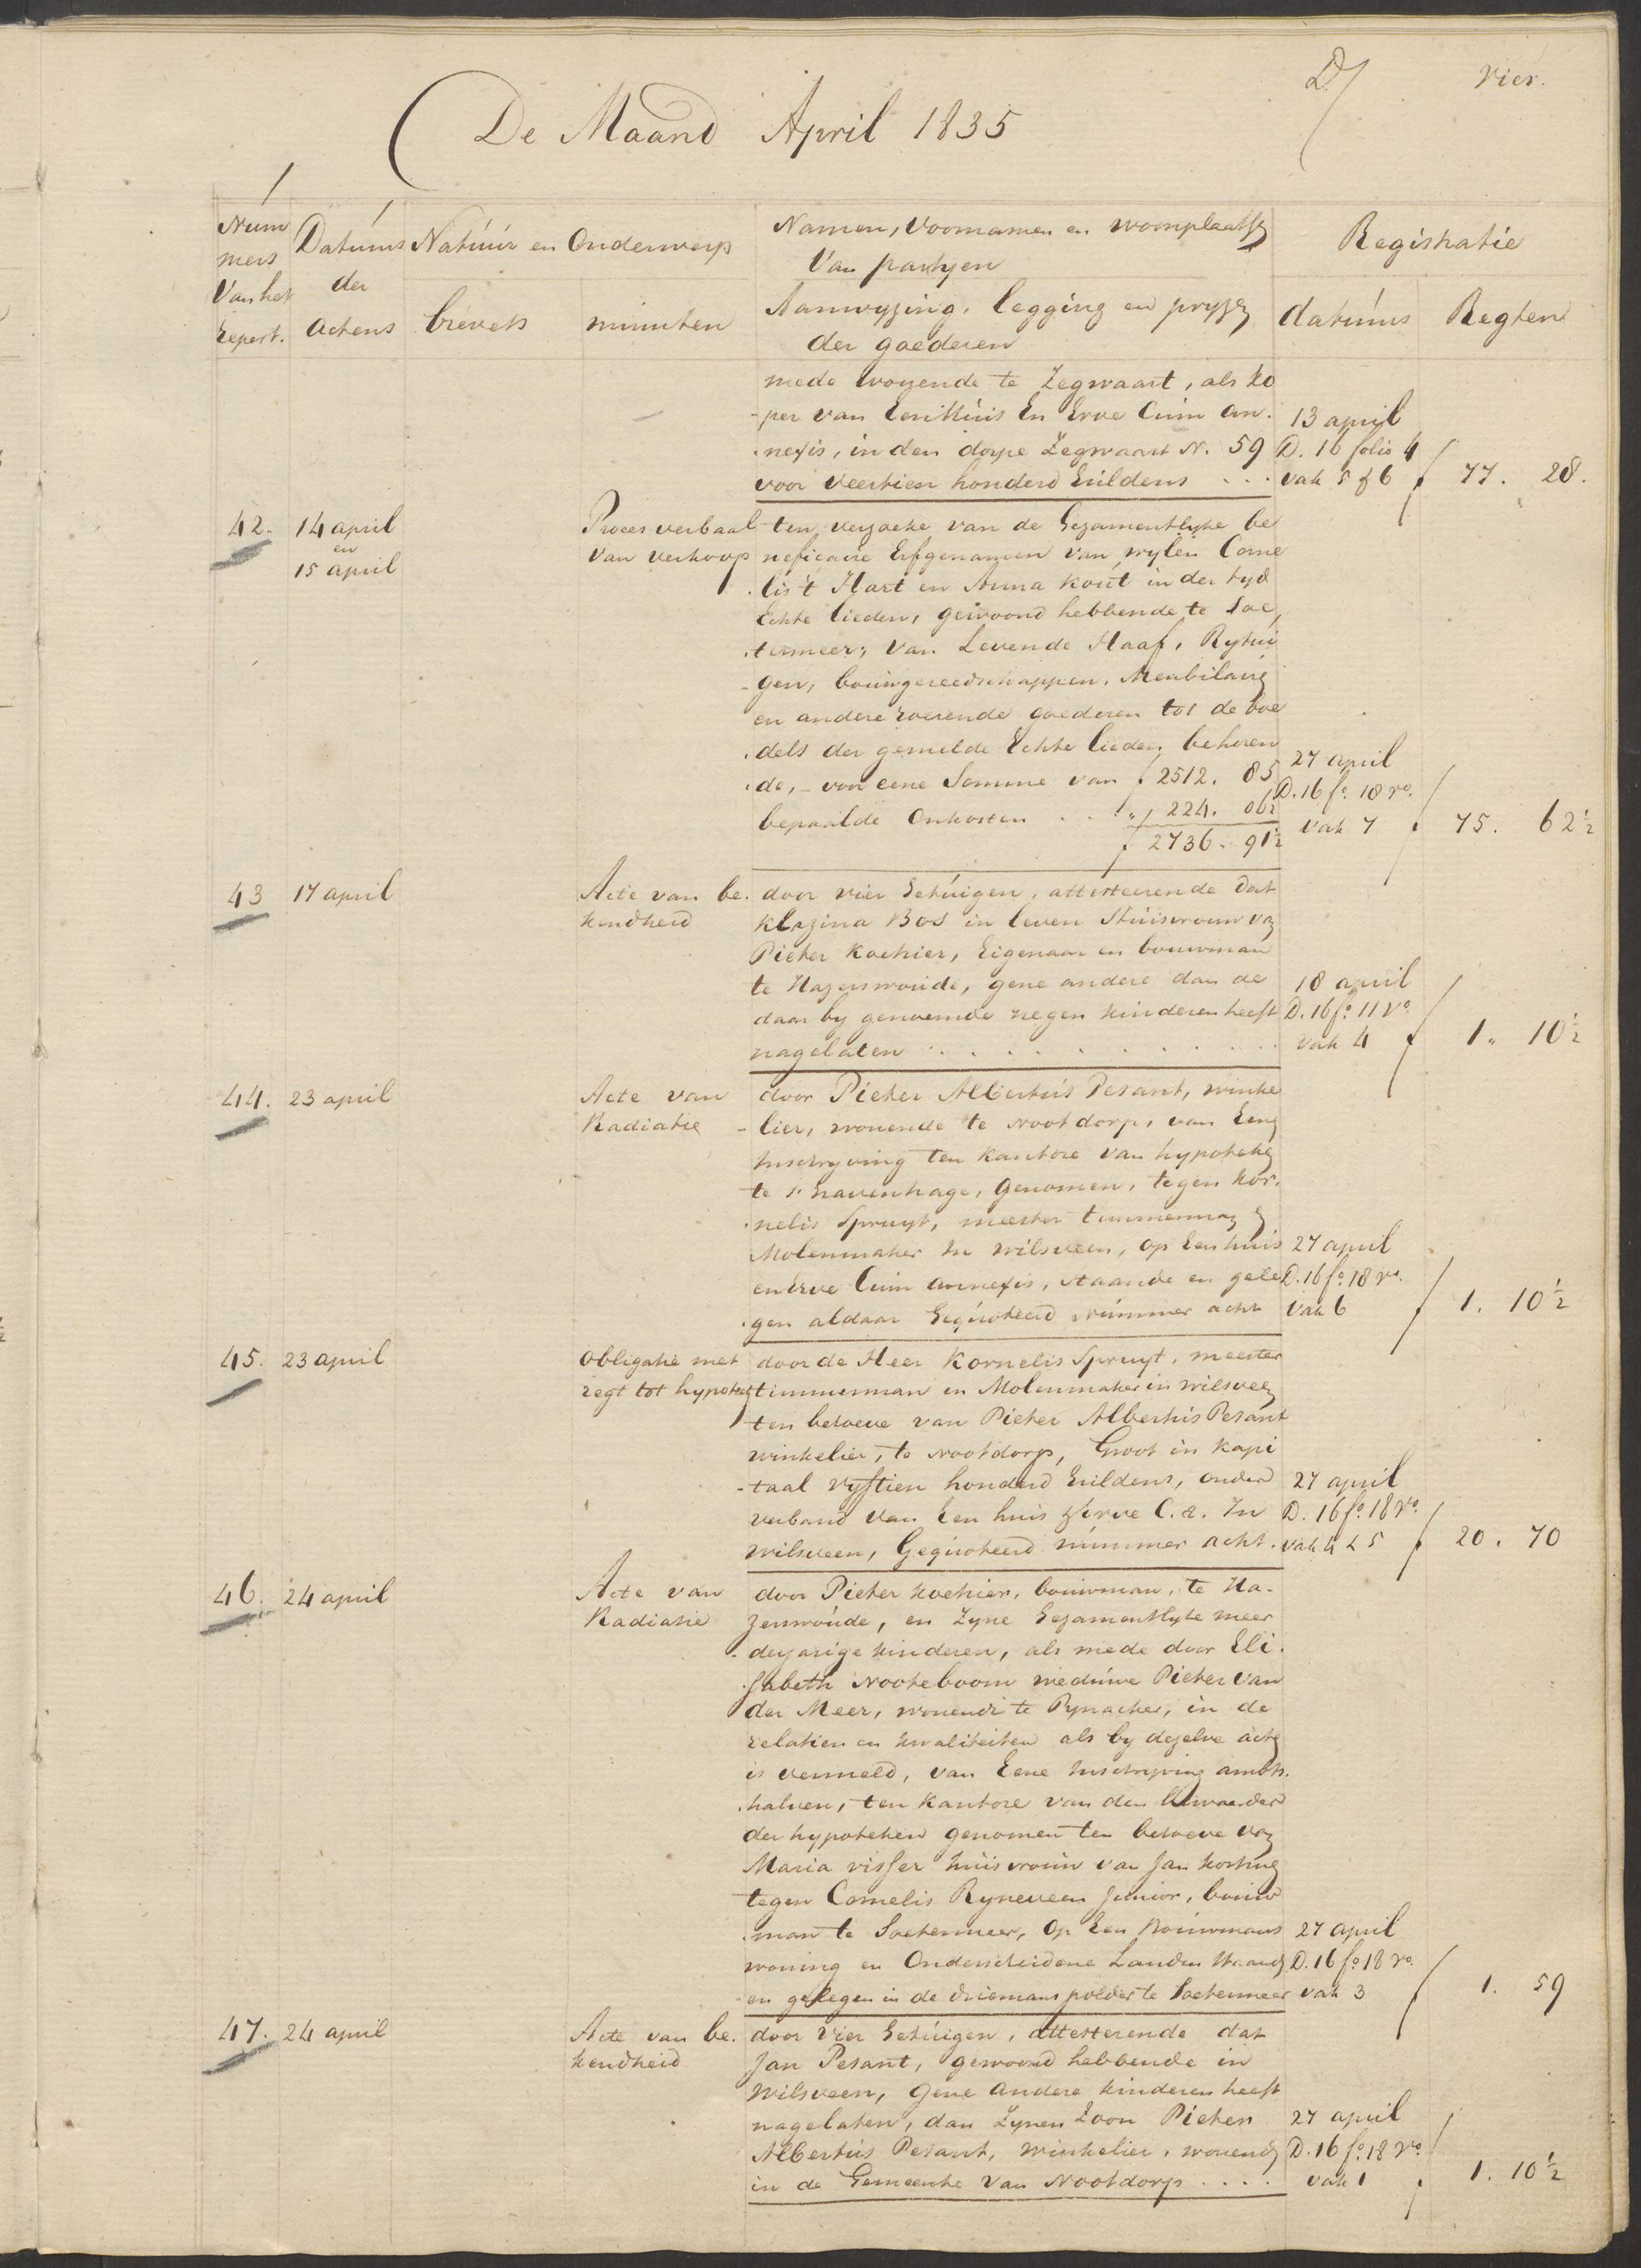 D/ vier.
De Maand April 1835
Num
mers
Van het
repert.
Datums
der
actens
Natuur en Onderwerp
brevets minuten
Namen, Voornamen en woonplaatse
Van partyen
Aanwyzing, legging en pryze
der goederen
Registratie
datums Regten
mede wonende te Zegwaart, als ko
per van Een Huis En Erve Cum an-
nexis, in den dorpe Zegwaart N. 59
voor veertien honderd Guldens ...
13 april
D. 16 folio 4
vak 5 & 6 f 77. 28.
42. 14 april
en
15 april
Proces verbaal
van verkoop
ten verzoeke van de Gezamentlyke be
neficaire Erfgenamen van wylen Corne
lis 't Hart en Anna Kout in der tyd
Echte lieden, gewoond hebbende te Soe
termeer; van Levende Haaf, Rytui
gen, bouwgereedschappen, Meubilaire
en andere roerende goederen tot de boe
dels der gemelde Echte lieden behoren
de, voor eene Somme van f 2512. 85
bepaalde Onkosten . . . " 224. 06½
f 2736. 91½
27 april
D. 16 fo. 18 ro.
vak 7 f 75. 62½
43 17 april
Acte van be-
kendheid
door vier Getuigen, attesteerende dat
Klazina Bos in leven Huisvrouw van
Pieter Koehier, Eigenaar en bouwman
te Hazerswoude, gene andere dan de
daar by genoemde negen kinderen heeft
nagelaten . . . . . . . .
18 april
D. 16 fo. 11 vo.
vak 4 f 1. 10½
44. 23 april
Acte van
Radiatie
door Pieter Albertus Pesant, winke
lier, wonende te Nootdorp, van Eene
Inschryving ten Kantore van hypoteke
te s Gravenhage, Genomen, tegen Kor-
nelis Spruyt, meester timmerman &
Molenmaker In wilsveen, op Een huis
en Erve Cum annexis, staande en gele
gen aldaar Gequoteerd nummer acht
27 april
D. 16 fo. 18 vo.
vak 6 f 1. 10½
45. 23 april
Obligatie met
regt tot hypoteek
door de Heer Kornelis Spruyt, meester
timmerman en Molenmaker in wilsveen
ten behoeve van Pieter Albertus Pesant
winkelier, te Nootdorp, Groot in Kapi
taal vyftien honderd Guldens, onder
verband van Een huis & Erve C. a. In
wilsveen, Gequoteerd nummer acht.
27 april
D. 16 fo. 18 vo.
vak 4 & 5 f 20. 70
46. 24 april
Acte van
Radiatie
door Pieter Koehier, bouwman, te Ha-
zerswoude, en Zyne Gezamentlyke meer
derjarige kinderen, als mede door Eli-
sabeth Nooteboom weduwe Pieter Van
der Meer, wonende te Pynacker, in de
relatien en kwaliteiten als by dezelve acte
is vermeld, van Eene Inschryving ambts-
halven, ten Kantore van den Bewaarder
der hypotheken genomen ten behoeve van
Maria visser huisvrouw van Jan Korting
tegen Cornelis Ryneveen Junior, bouw
man te Soetermeer, Op Een Bouwmans
woning en Onderscheidene Landen staande
en gelegen in de driemans polder te Soetermeer
27 april
D. 16 fo. 18 vo.
vak 3 f 1. 59
47. 24 april
Acte van be-
kendheid
door vier Getuigen, attesterende dat
Jan Pesant, gewoond hebbende in
Wilsveen, gene andere kinderen heeft
nagelaten, dan Zynen Zoon Pieter
Albertus Pesant, winkelier, wonende
in de Gemeente van Nootdorp . . . .
27 april
D. 16 fo. 18 vo.
vak 1 f 1. 10½